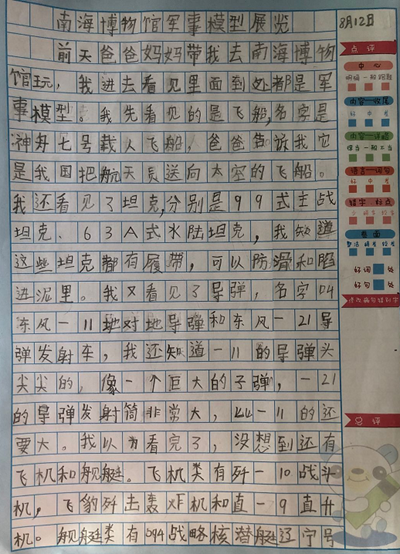 南海博物馆军事模型展览
8月12日
前天爸爸妈妈带我去南海博物
馆玩，我进去看见里面到处都是军
事模型。我先看见的是飞船，名字是
神舟七号载人飞船，爸爸告诉我它
是我国把航天员送向太空的飞船。
我还看见了坦克，分别是99式主战
坦克、63A式水陆坦克，我知道
这些坦克都有履带，可以防滑和陷
进泥里。我又看见了导弹，名字叫
东风一11地对地导弹和东风一21导
弹发射车，我还知道一11的导弹头
尖尖的，像一个巨大的子弹，一21
的导弹发射筒非常大，比一11的还
要大。我以为看完了，没想到还有
飞机和舰艇。飞机类有歼一10战斗
机，飞豹歼击轰炸机和直一9直升
机。舰艇类有094战略核潜艇辽宁号
点评
中心
错字 标点
卷面
好词
好句
总评